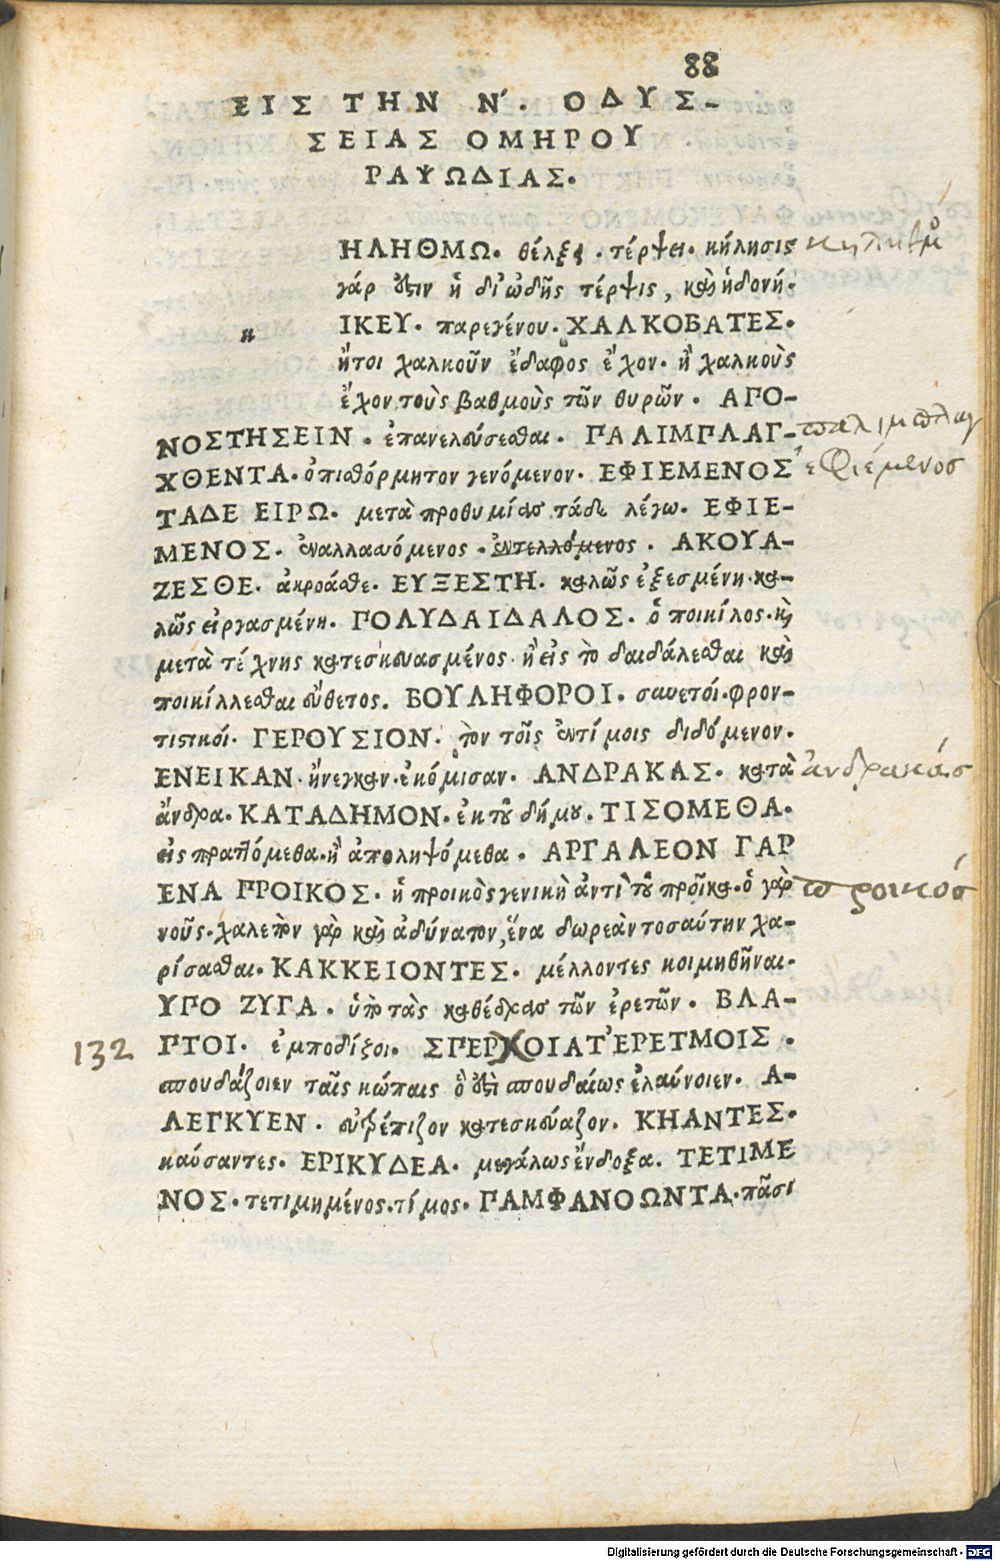 88
ΕΙΣ ΤΗΝ Ν΄. ΟΔΥΣ-
ΣΕΙΑΣ ΟΜΗΡΟΥ
ΡΑΨΩΔΙΑΣ.
ΗΛΗΘΜΩ. θέλξει. τέρψει. κήλησις
γάρ ὅστιν ἡ δι' ὠδῆς τέρψις, καὶ ἡδονή.
κ ΙΚΕΥ. παρεγένου. ΧΑΛΚΟΒΑΤΕΣ.
ἤτοι χαλκοῦν ἔδαφος ἔχον. ἢ χαλκοὺς
ἔχον τοὺς βαθμοὺς τῶν θυρῶν. ΑΠΟ-
ΝΟΣΤΗΣΕΙΝ. ἐπανελεύσεσθαι. ΠΑΛΙΜΠΛΑΓ-
ΧΘΕΝΤΑ. ὀπισθόρμητον γενόμενον. ΕΦΙΕΜΕΝΟΣ
ἐφιέμενος
ΤΑΔΕ ΕΙΡΩ. μετὰ προθυμίας τάδε λέγω. ΕΦΙΕ-
ΜΕΝΟΣ. ἐναλλασσόμενος. ἐντελλόμενος. ΑΚΟΥΑ-
ΖΕΣΘΕ. ἀκροάσθε. ΕΥΞΕΣΤΗ. καλῶς ἐξεσμένη. κα-
λῶς εἰργασμένη. ΠΟΛΥΔΑΙΔΑΛΟΣ. ὁ ποικίλος. καὶ
μετὰ τέχνης κατεσκευασμένος ἢ εἰς τὸ δαιδάλεσθαι καὶ
ποικίλλεσθαι εὔθετος. ΒΟΥΛΗΦΟΡΟΙ. συνετοί. φρον-
τιστικοί. ΓΕΡΟΥΣΙΟΝ. τὸν τοῖς ἐντίμοις διδόμενον.
ΕΝΕΙΚΑΝ. ἤνεγκαν. ἐκόμισαν. ΑΝΔΡΑΚΑΣ. κατὰ
ἀνδρακάς
ἄνδρα. ΚΑΤΑΔΗΜΟΝ. ἐκ τοῦ δήμου. ΤΙΣΟΜΕΘΑ.
εἰς πραττόμεθα. ἢ ἀποληψόμεθα. ΑΡΓΑΛΕΟΝ ΓΑΡ
ΕΝΑ ΠΡΟΙΚΟΣ. ἡ προικὸς γενικὴ ἀντὶ τοῦ προῖκα. ὁ γὰρ
προικόσ
νοῦς. χαλεπὸν γὰρ καὶ ἀδύνατον, ἕνα δωρεὰν τοσαύτην χα-
ρίσασθαι. ΚΑΚΚΕΙΟΝΤΕΣ. μέλλοντες κοιμηθῆναι.
ΥΠΟ ΖΥΓΑ. ὑπὸ τὰς καθέδρας τῶν ἐρετῶν. ΒΛΑ-
132 ΠΤΟΙ. ἐμποδίζοι. ΣΠΕΡΧΟΙΑΤ' ΕΡΕΤΜΟΙΣ.
σπουδάζοιεν ταῖς κώπαις ὅ ἐστι σπουδαίως ἐλαύνοιεν. Α-
ΛΕΓΚΥΕΝ. εὐτρέπιζον κατεσκεύαζον. ΚΗΑΝΤΕΣ.
καύσαντες. ΕΡΙΚΥΔΕΑ. μεγάλως ἔνδοξα. ΤΕΤΙΜΕ
ΝΟΣ. τετιμημένος. τίμος. ΠΑΜΦΑΝΟΩΝΤΑ. πᾶσι
Digitalisierung gefördert durch die Deutsche Forschungsgemeinschaft - DFG